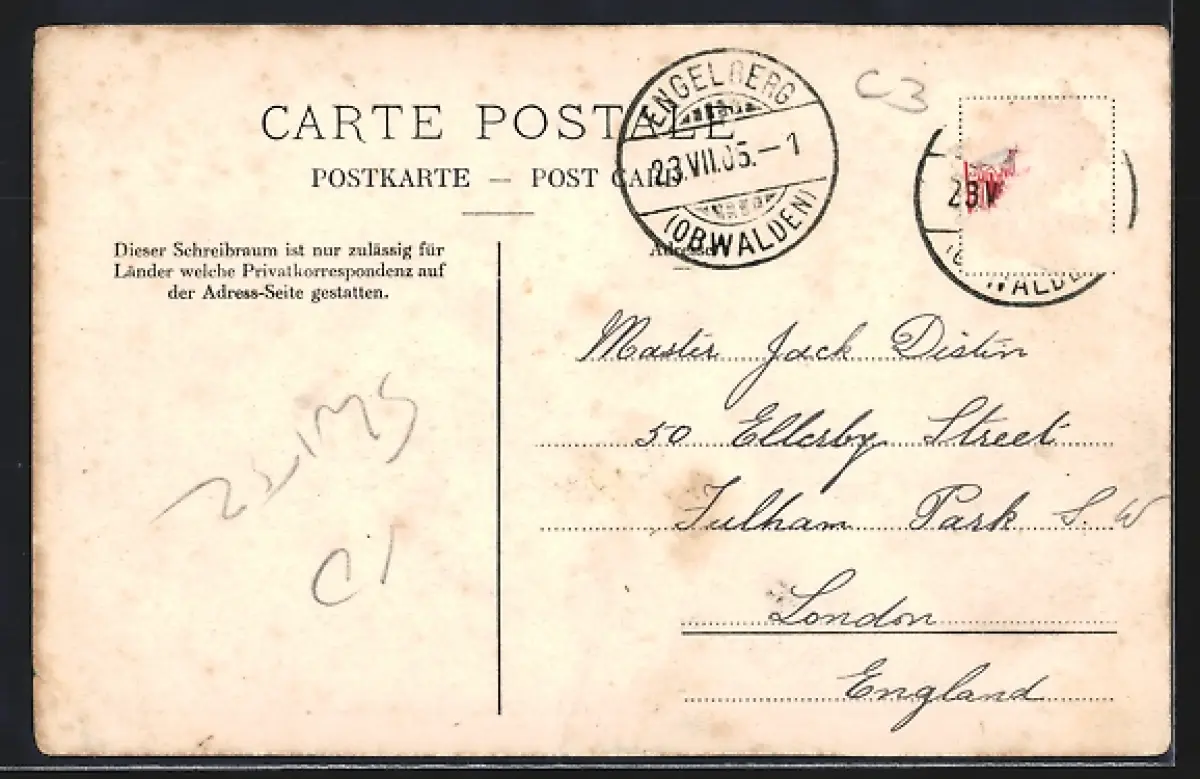 CARTE POSTALE
POSTKARTE — POST CARD
ENGELBERG
23.VII.05.—1
(OBWALDEN)
C3
23 V
WALDE
Dieser Schreibraum ist nur zulässig für
Länder welche Privatkorrespondenz auf
der Adress-Seite gestatten.
Adresse
Master Jack Distin
50 Ellerby Street
Fulham Park S. W
London
England
C1